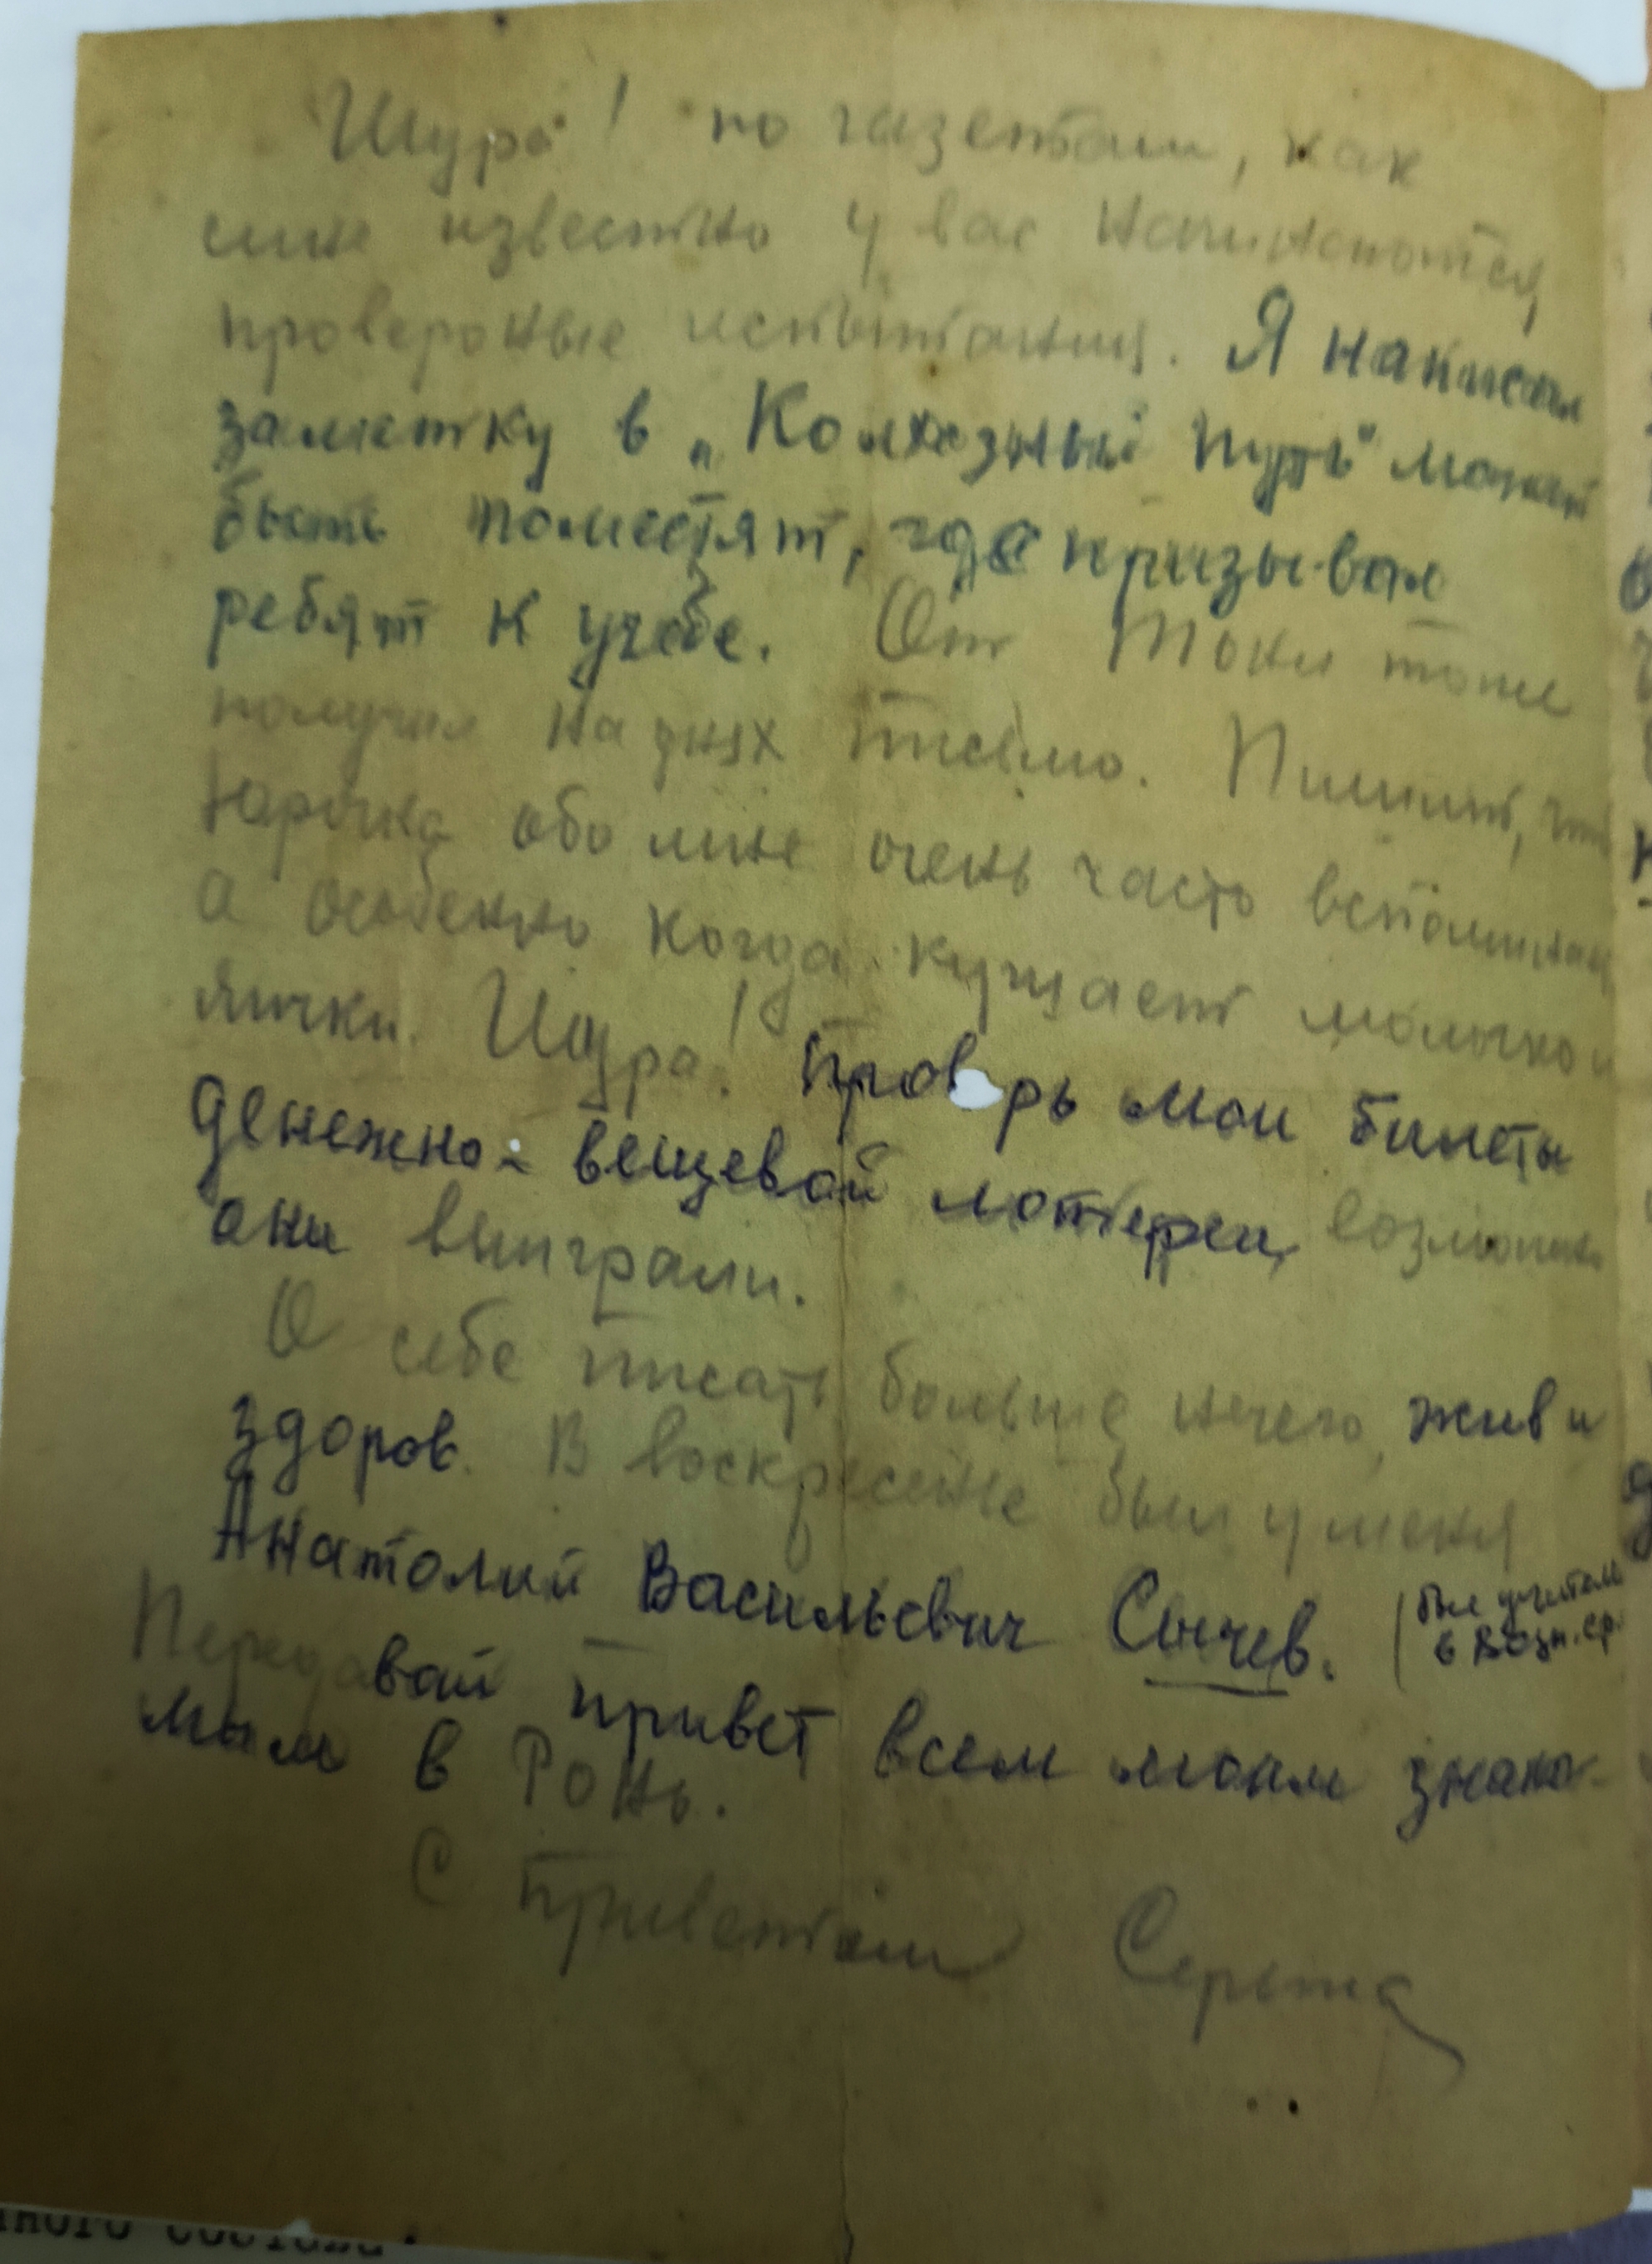 Шура! по газетам, как
мне известно у вас начинаются
провероные испытания. Я написал
заметку в „Колхозный путь" может
быть поместят, где призывал
ребят к учебе. От Токи тоже
получил на днях письмо. Пишит, что
Юрочка обо мне очень часто вспоминает
а особенно когда кушает молочко и
яички. Шура! Пров рь мои билеты
денежно-вещевой лотереи, возможно
они выиграли.
О себе писать больше нечего, жив и
здоров. В воскресенье был у меня
Анатолий Васильевич Сычев. (был учителем
в Возн. ср.
Передавай привет всем моим знако-
мым в РОНо.
С приветом Сережа
ного состава.